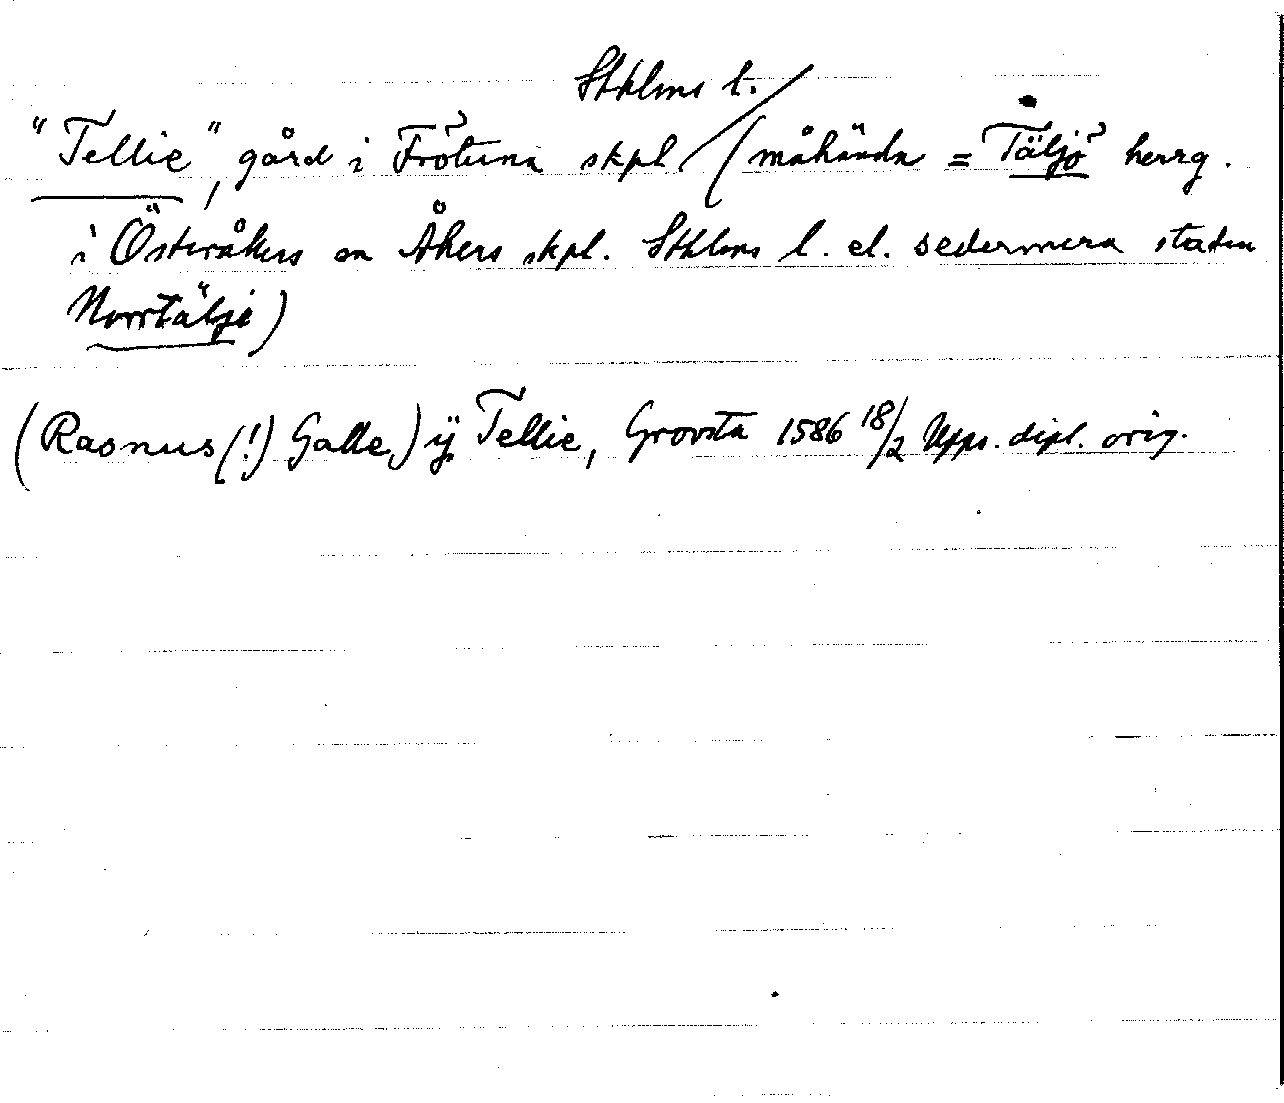 Sthlms l.
"Tellie", gård i Frötuna skpl (måhända = Täljö herrg.
i Österåkers sn Åkers skpl. Sthlms l. el. sedermera staden
Norrtälje)
(Rasnus (!) Galle) ÿ Tellie, Grovsta 1586 18/2 Upps. dipl. orig.